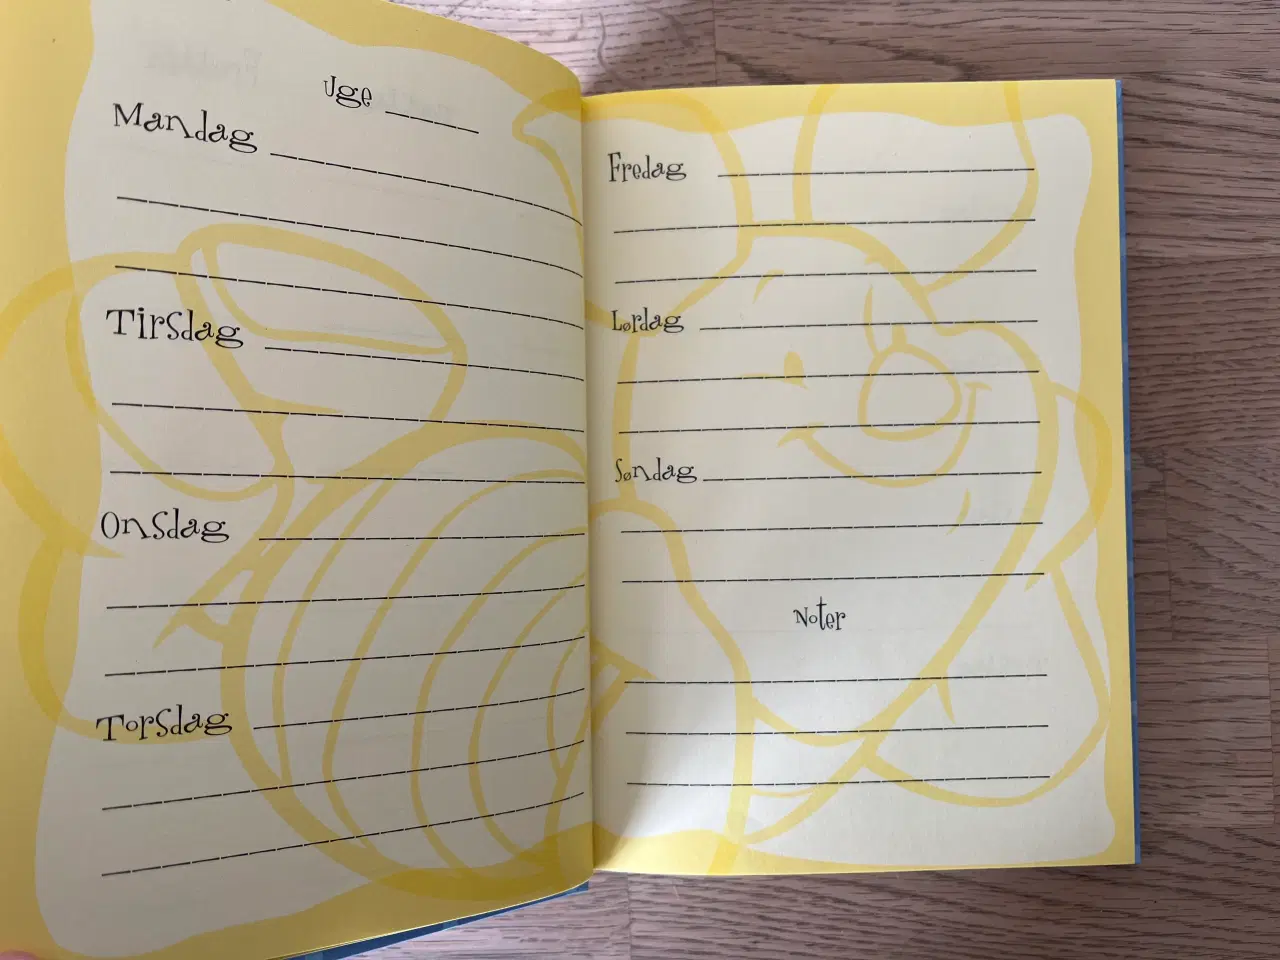 Uge
Mandag
Tirsdag
Onsdag
Torsdag
Fredag
Lørdag
Søndag
Noter